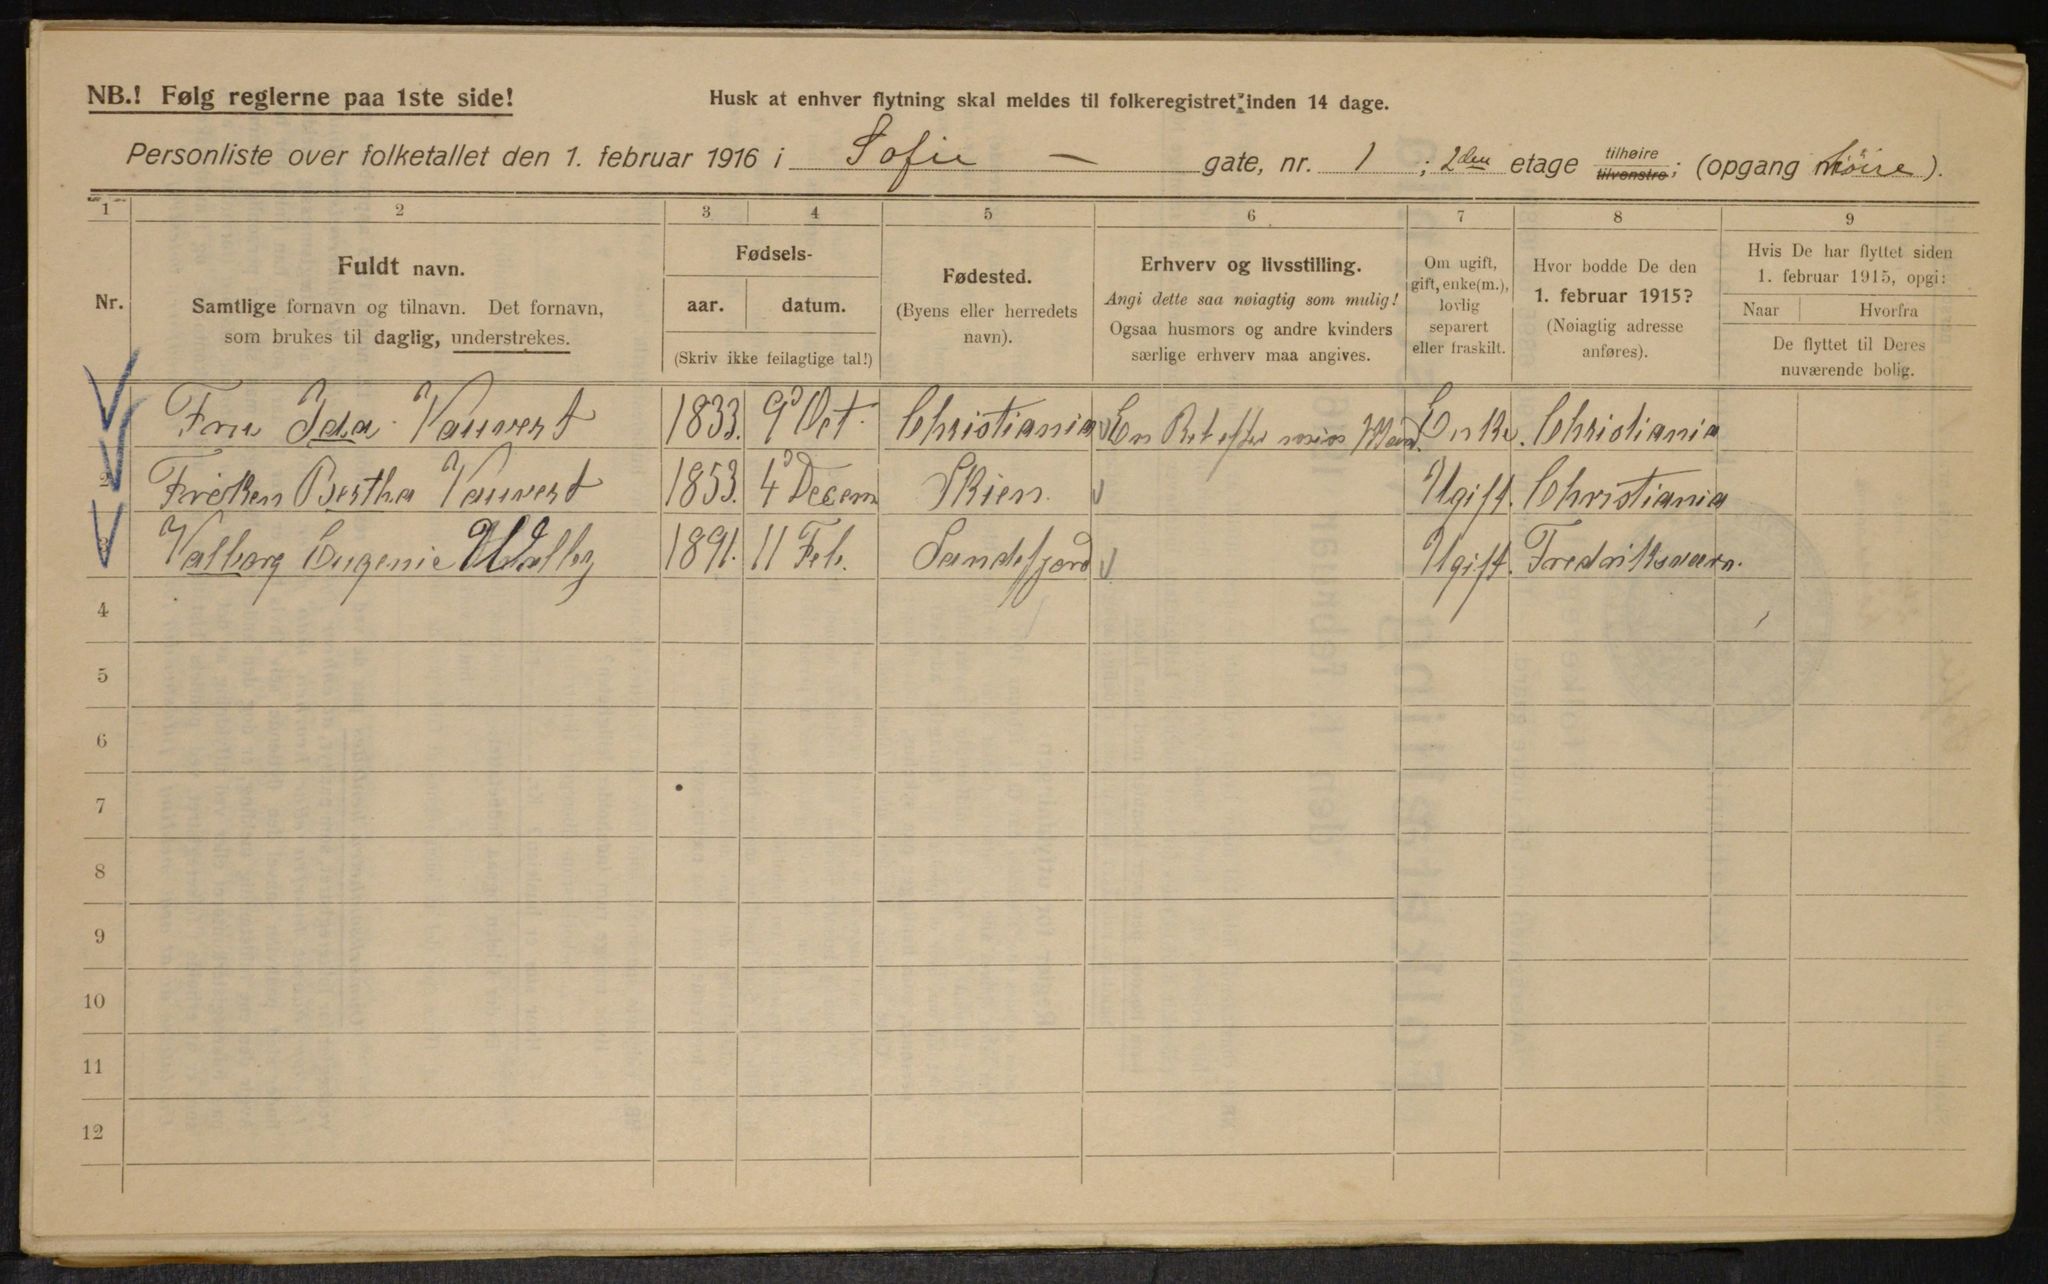 NB.! Følg reglerne paa 1ste side!
Husk at enhver flytning skal meldes til folkeregistret inden 14 dage.
Personliste over folketallet den 1. februar 1916 i Sofie — gate, nr. 1 ; 2den etage tilhøire tilvenstre; (opgang ).
1 2 3 4 5 6 7 8 9
Nr.
Fuldt navn.
Samtlige fornavn og tilnavn. Det fornavn,
som brukes til daglig, understrekes.
Fødsels-
aar. datum.
(Skriv ikke feilagtige tal!)
Fødested.
(Byens eller herredets
navn).
Erhverv og livsstilling.
Angi dette saa nøiagtig som mulig!
Ogsaa husmors og andre kvinders
særlige erhverv maa angives.
Om ugift,
gift, enke(m.),
lovlig
separert
eller fraskilt.
Hvor bodde De den
1. februar 1915?
(Nøiagtig adresse
anføres).
Hvis De har flyttet siden
1. februar 1915, opgi:
Naar Hvorfra
De flyttet til Deres
nuværende bolig.
Fru Ida Vauvert 1833. 9 Oct. Christiania En efter Mand. Enke. Christiania
2 Frøken Bertha Vauvert 1853. 4 Decem Skien. Ugift. Christiania
3 Valborg Eugenie 1891. 11 Feb. Sandefjord Ugift. Fredriksværn.
4
5
6
7
8
9
10
11
12